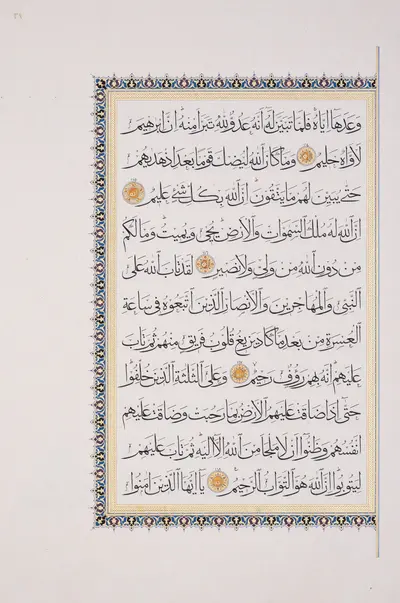 ٢٦
وعدها اياه فلما تبين له انه عدو لله تبرا منه ان ابرهيم
لاواه حليم وما كان الله ليضل قوما بعد اذ هديهم
حتى يبين لهم ما يتقون ان الله بكل شئ عليم
ان الله له ملك السموات والارض يحيى ويميت وما لكم
من دون الله من ولى ولا نصير لقد تاب الله على
النبى والمهاجرين والانصار الذين اتبعوه فى ساعة
العسرة من بعد ما كاد يزيغ قلوب فريق منهم ثم تاب
عليهم انه بهم رؤوف رحيم وعلى الثلثة الذين خلفوا
حتى اذا ضاقت عليهم الارض بما رحبت وضاقت عليهم
انفسهم وظنوا ان لا ملجا من الله الا اليه ثم تاب عليهم
ليتوبوا ان الله هو التواب الرحيم يا ايها الذين امنوا